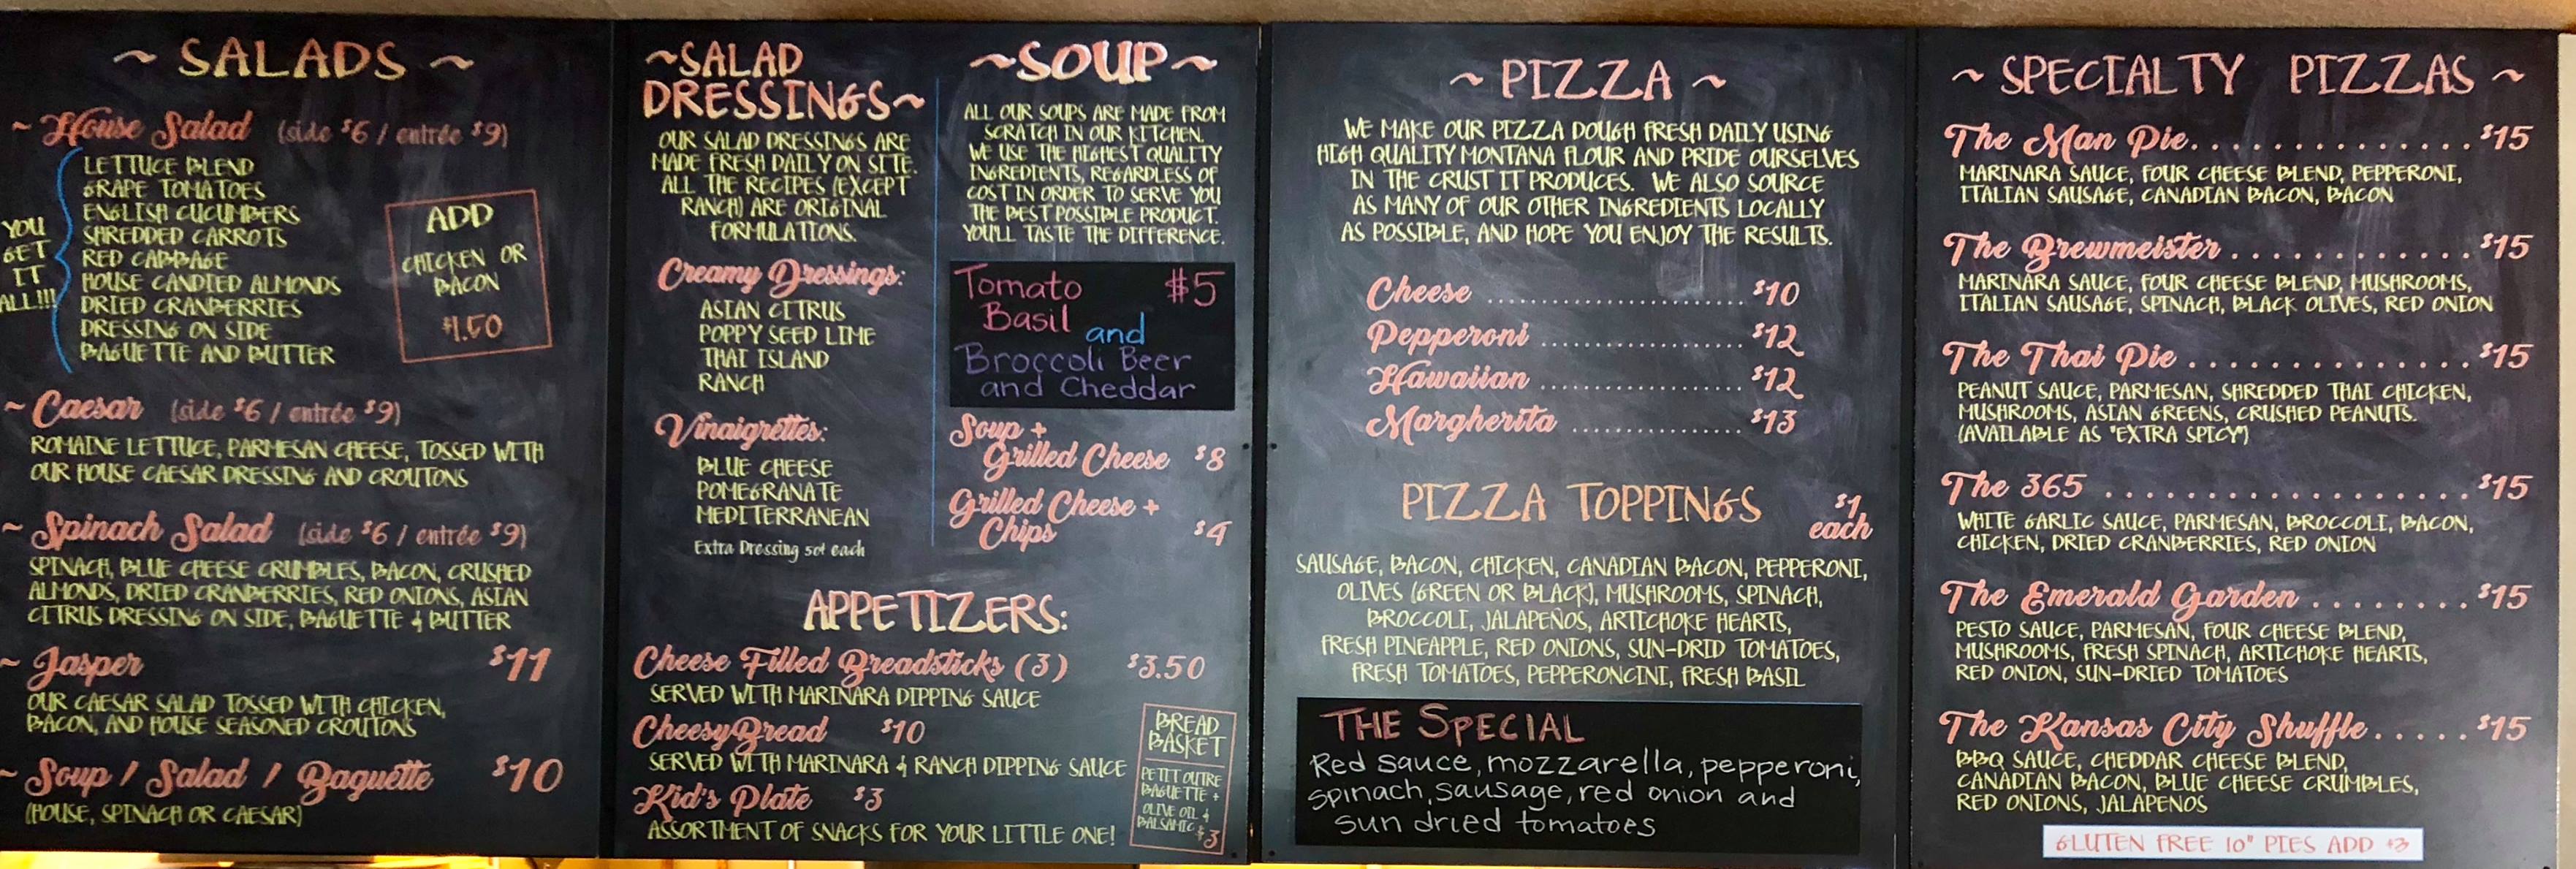 ~ SALADS ~
~ House Salad (side $6 / entrée $9)
YOU
GET
IT
ALL!!!
LETTUCE BLEND
GRAPE TOMATOES
ENGLISH CUCUMBERS
SHREDDED CARROTS
RED CABBAGE
HOUSE CANDIED ALMONDS
DRIED CRANBERRIES
DRESSING ON SIDE
BAGUETTE AND BUTTER
ADD
CHICKEN OR
BACON
$1.50
~ Caesar (side $6 / entrée $9)
ROMAINE LETTUCE, PARMESAN CHEESE, TOSSED WITH
OUR HOUSE CAESAR DRESSING AND CROUTONS
~ Spinach Salad (side $6 / entrée $9)
SPINACH, BLUE CHEESE CRUMBLES, BACON, CRUSHED
ALMONDS, DRIED CRANBERRIES, RED ONIONS, ASIAN
CITRUS DRESSING ON SIDE, BAGUETTE & BUTTER
~ Jasper $11
OUR CAESAR SALAD TOSSED WITH CHICKEN,
BACON, AND HOUSE SEASONED CROUTONS
~ Soup / Salad / Baguette $10
(HOUSE, SPINACH OR CAESAR)
~SALAD
DRESSINGS~
OUR SALAD DRESSINGS ARE
MADE FRESH DAILY ON SITE.
ALL THE RECIPES (EXCEPT
RANCH) ARE ORIGINAL
FORMULATIONS.
Creamy Dressings:
ASIAN CITRUS
POPPY SEED LIME
THAI ISLAND
RANCH
Vinaigrettes:
BLUE CHEESE
POMEGRANATE
MEDITERRANEAN
Extra Dressing 50¢ each
~SOUP~
ALL OUR SOUPS ARE MADE FROM
SCRATCH IN OUR KITCHEN.
WE USE THE HIGHEST QUALITY
INGREDIENTS, REGARDLESS OF
COST IN ORDER TO SERVE YOU
THE BEST POSSIBLE PRODUCT.
YOU'LL TASTE THE DIFFERENCE.
Tomato $5
Basil and
Broccoli Beer
and Cheddar
Soup +
Grilled Cheese $8
Grilled Cheese +
Chips $4
APPETIZERS:
Cheese Filled Breadsticks (3) $3.50
SERVED WITH MARINARA DIPPING SAUCE
CheesyBread $10
SERVED WITH MARINARA & RANCH DIPPING SAUCE
Kid's Plate $3
ASSORTMENT OF SNACKS FOR YOUR LITTLE ONE!
BREAD
BASKET
PETIT OUTRE
BAGUETTE +
OLIVE OIL &
BALSAMIC $3
~ PIZZA ~
WE MAKE OUR PIZZA DOUGH FRESH DAILY USING
HIGH QUALITY MONTANA FLOUR AND PRIDE OURSELVES
IN THE CRUST IT PRODUCES. WE ALSO SOURCE
AS MANY OF OUR OTHER INGREDIENTS LOCALLY
AS POSSIBLE, AND HOPE YOU ENJOY THE RESULTS.
Cheese ........................ $10
Pepperoni ..................... $12
Hawaiian ..................... $12
Margherita .................. $13
PIZZA TOPPINGS $1
each
SAUSAGE, BACON, CHICKEN, CANADIAN BACON, PEPPERONI,
OLIVES (GREEN OR BLACK), MUSHROOMS, SPINACH,
BROCCOLI, JALAPEÑOS, ARTICHOKE HEARTS,
FRESH PINEAPPLE, RED ONIONS, SUN-DRID TOMATOES,
FRESH TOMATOES, PEPPERONCINI, FRESH BASIL
THE SPECIAL
Red sauce, mozzarella, pepperoni,
spinach, sausage, red onion and
sun dried tomatoes
~ SPECIALTY PIZZAS ~
The Man Pie............... $15
MARINARA SAUCE, FOUR CHEESE BLEND, PEPPERONI,
ITALIAN SAUSAGE, CANADIAN BACON, BACON
The Brewmeister ............. $15
MARINARA SAUCE, FOUR CHEESE BLEND, MUSHROOMS,
ITALIAN SAUSAGE, SPINACH, BLACK OLIVES, RED ONION
The Thai Pie ............... $15
PEANUT SAUCE, PARMESAN, SHREDDED THAI CHICKEN,
MUSHROOMS, ASIAN GREENS, CRUSHED PEANUTS.
(AVAILABLE AS "EXTRA SPICY")
The 365 ................... $15
WHITE GARLIC SAUCE, PARMESAN, BROCCOLI, BACON,
CHICKEN, DRIED CRANBERRIES, RED ONION
The Emerald Garden ........ $15
PESTO SAUCE, PARMESAN, FOUR CHEESE BLEND,
MUSHROOMS, FRESH SPINACH, ARTICHOKE HEARTS,
RED ONION, SUN-DRIED TOMATOES
The Kansas City Shuffle..... $15
BBQ SAUCE, CHEDDAR CHEESE BLEND,
CANADIAN BACON, BLUE CHEESE CRUMBLES,
RED ONIONS, JALAPENOS
GLUTEN FREE 10" PIES ADD $3